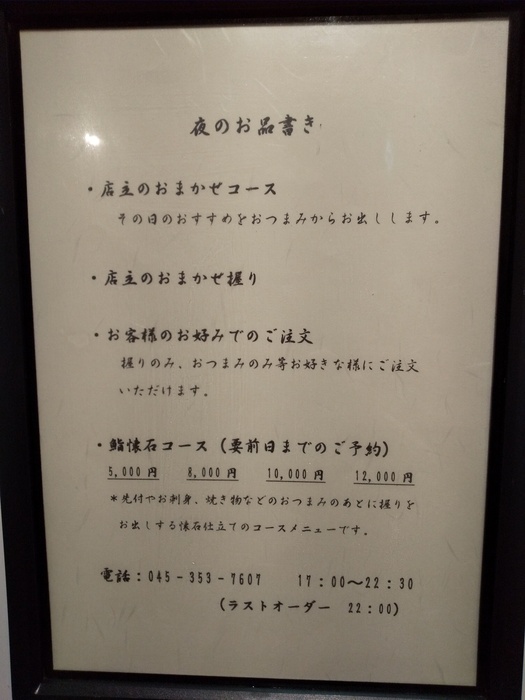 夜のお品書き
・店主のおまかせコース
その日のおすすめをおつまみからお出しします。
・店主のおまかせ握り
・お客様のお好みでのご注文
握りのみ、おつまみのみ等お好きな様にご注文
いただけます。
・鮨懐石コース（要前日までのご予約）
5,000円 8,000円 10,000円 12,000円
＊先付やお刺身、焼き物などのおつまみのあとに握りを
お出しする懐石仕立てのコースメニューです。
電話：045－353－7607 17：00～22：30
（ラストオーダー 22：00）